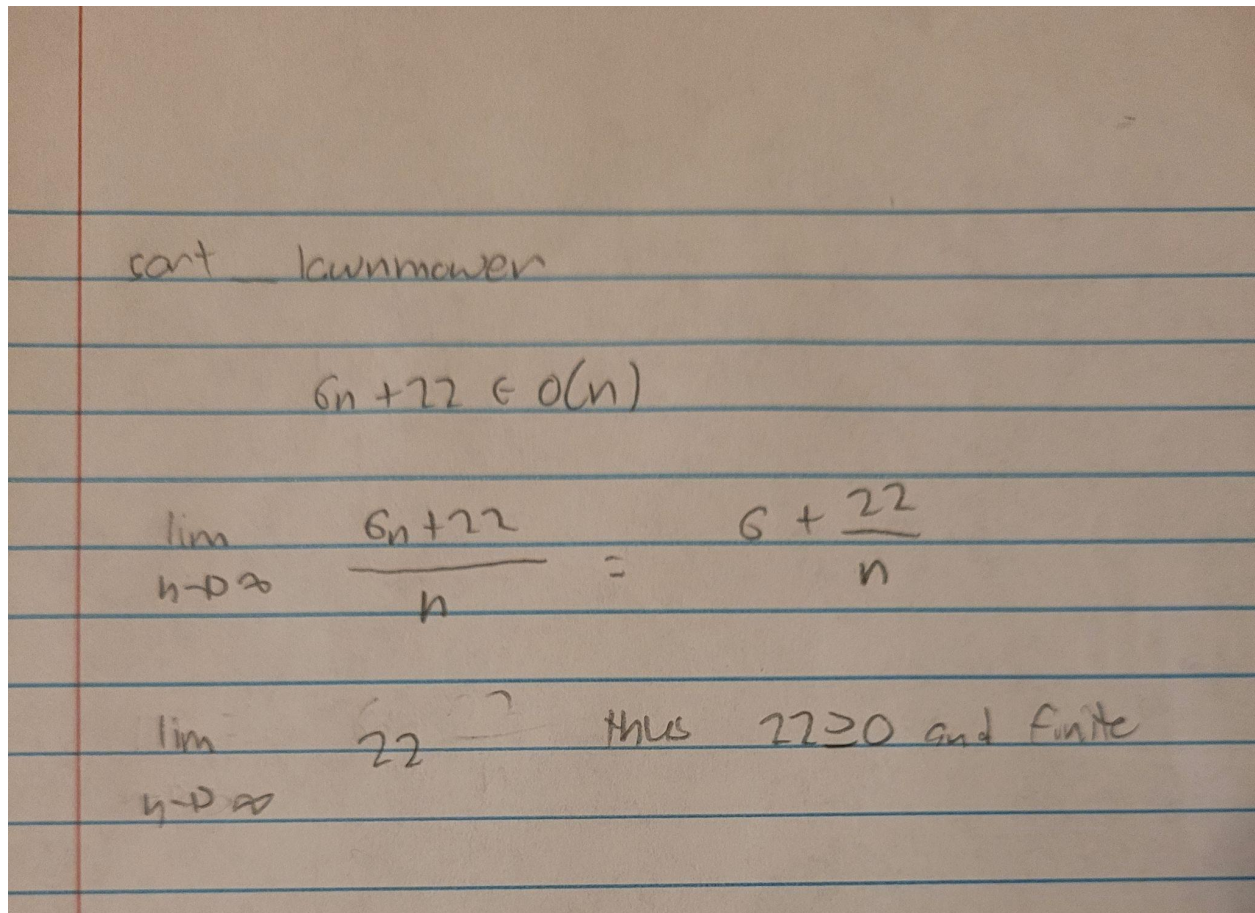 sort_lawnmower
6n + 22 ∈ O(n)
lim n→∞ (6n + 22)/n = 6 + 22/n
lim n→∞ 22 thus 22 ≥ 0 and finite